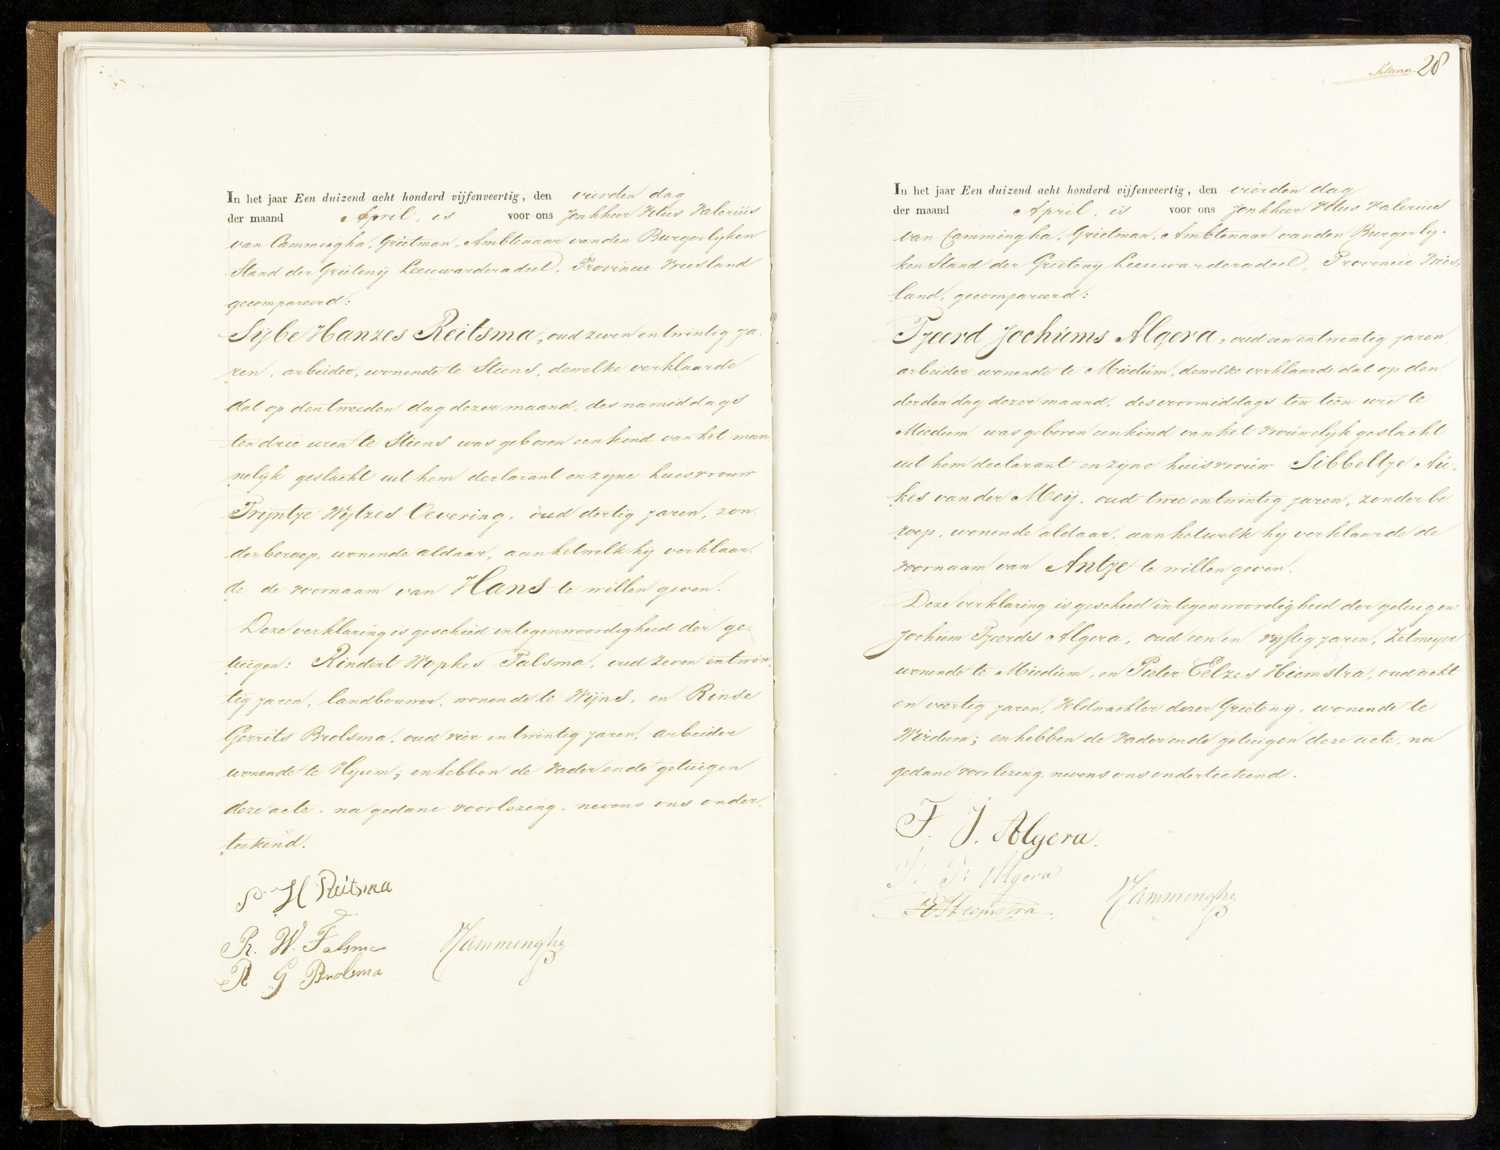 In het jaar Een duizend acht honderd vijfenveertig, den vierden dag
der maand April, is voor ons Jonkheer Vitus Valerius
van Cammingha, Grietman, Ambtenaar van den Burgerlyken
Stand der Grietenij Leeuwarderadeel, Provincie Vriesland
gecompareerd:
Sijbe Hanzes Reitsma, oud zeven en twintig ja-
ren, arbeider, wonende te Stiens, dewelke verklaarde
dat op den tweeden dag dezer maand, des namiddags
ten drie uren te Stiens was geboren een kind van het man
nelijk geslacht uit hem declarant en zyne huisvrouw
Trijntje Wytzes Oevering, oud dertig jaren, zon
der beroep, wonende aldaar, aan hetwelk hij verklaar
de de voornaam van Hans te willen geven.
Deze verklaring is geschied in tegenwoordigheid der ge-
tuigen: Rindert Wopkes Talsma, oud zeven en twin
tig jaren, landbouwer, wonende te Wijns, en Rinse
Gerrits Brolsma, oud vier en twintig jaren, arbeider
wonende te Hijum; en hebben de Vader en de getuigen
deze acte, na gedane voorlezing, nevens ons onder-
teekend.
S H Reitsma
R. W. Talsma
R G Brolsma
VVCammingha
28
In het jaar Een duizend acht honderd vijfenveertig, den vierden dag
der maand April, is voor ons Jonkheer Vitus Valerius
van Cammingha, Grietman, Ambtenaar van den Burgerly-
ken Stand der Grietenij Leeuwarderadeel, Provincie Vries-
land, gecompareerd:
Tjeerd Jochums Algera, oud een en twintig jaren
arbeider wonende te Miedum, dewelke verklaarde dat op den
derden dag dezer maand, des voormiddags ten tien ure te
Miedum was geboren een kind van het vrouwelyk geslacht
uit hem declarant en zijne huisvrouw Sibbeltje Au-
kes van der Meij, oud twee en twintig jaren, zonder be
roep, wonende aldaar, aan hetwelk hy verklaarde de
voornaam van Antje te willen geven.
Deze verklaring is geschied in tegenwoordigheid der getuigen
Jochum Tjeerds Algera, oud een en vyftig jaren, Zetmeyer
wonende te Miedum, en Pieter Eelzes Hiemstra, oud acht
en veertig jaren, Veldwachter dezer Grietenij, wonende te
Wirdum; en hebben de Vader en de getuigen deze acte, na
gedane voorlezing, nevens ons onderteekend.
T. J. Algera.
J. T. Algera
P E Hiemstra.
VVCammingha